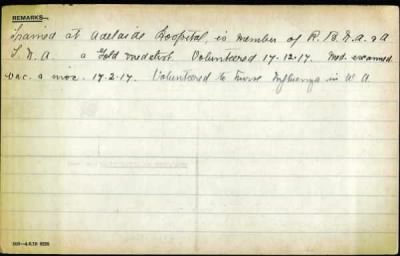 REMARKS—
Trained at Adelaide Hospital, is member of R. B. N. A. & A
T. N. A. a Gold medalist. Volunteered 17-12-17. Med. examined
vac. & inoc. 17.2.17. Volunteered to Nurse Influenza in W A